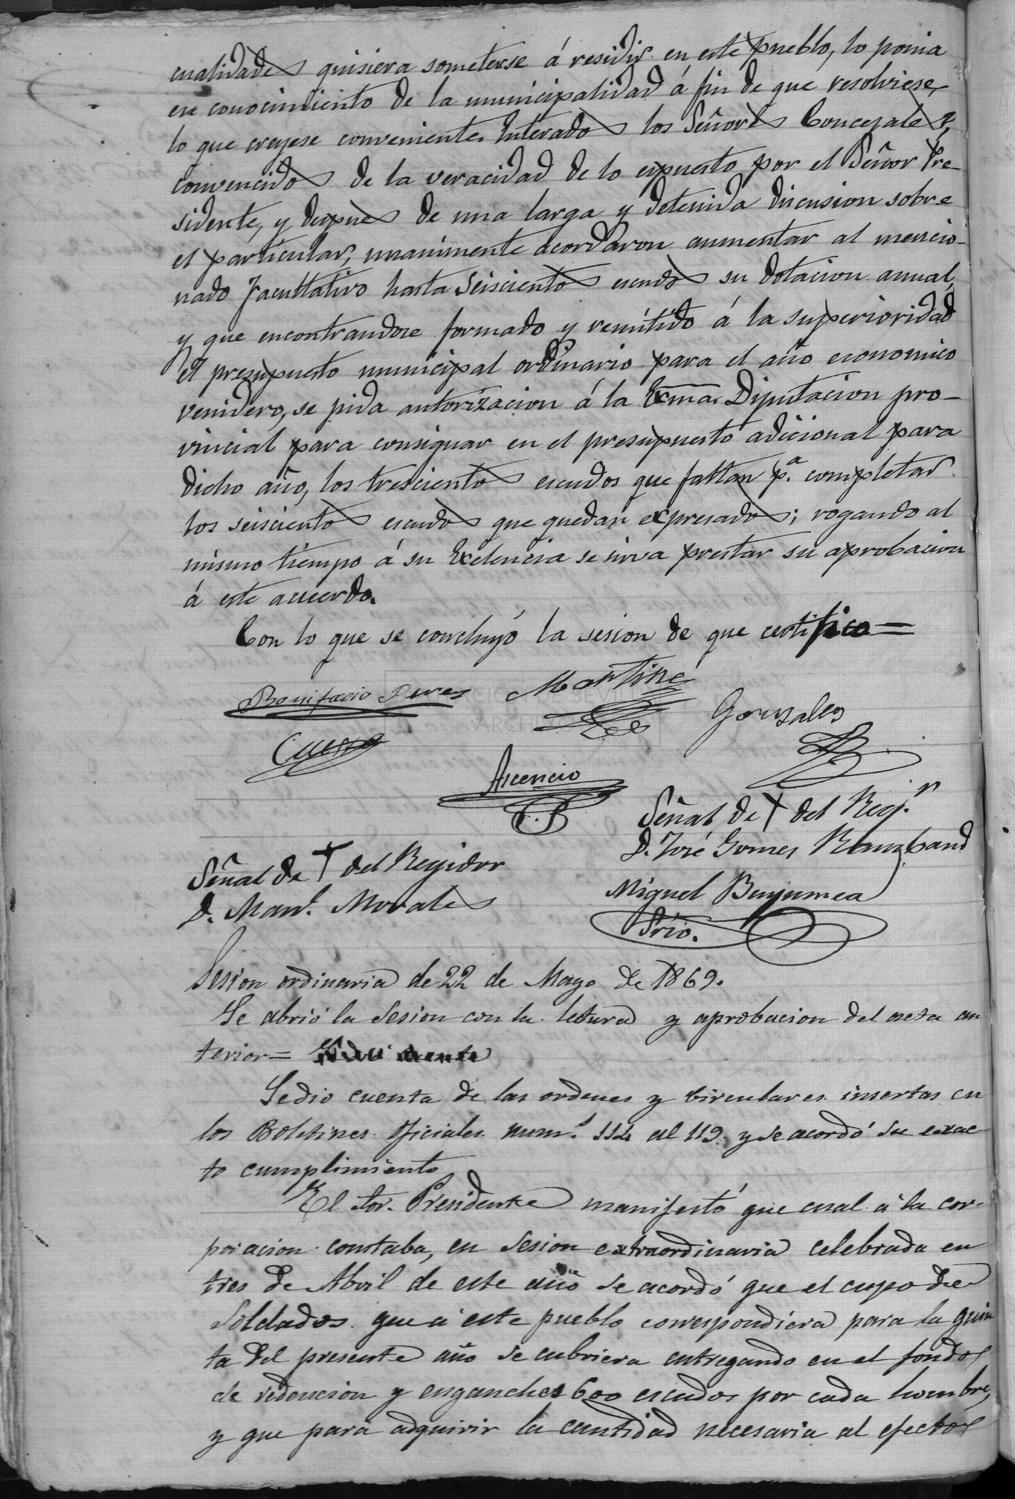 cualidades quisiera someterse á residir en este pueblo, lo ponia
en conocimiento de la municipalidad á fin de que resolviese
lo que creyese conveniente. Enterados los Señores Concejales y,
convencidos de la veracidad de lo espuesto por el Señor Pre-
sidente, y despues de una larga y detenida discusion sobre
el particular, unanimente acordaron aumentar al mencio-
nado Facultativo hasta Seiscientos escudos su dotacion anual,
y que encontrandose formado y remitido á la superioridad
el presupuesto municipal ordinario para el año economico
venidero, se pida autorizacion á la Exma. Diputacion pro-
vincial para consignar en el presupuesto adicional para
dicho año, los trescientos escudos que faltan p.ª completar
los seiscientos escudos que quedan expresados; rogando al
mismo tiempo á su Excelencia se sirva prestar su aprobacion
á este acuerdo.
Con lo que se concluyó la sesion de que certifico=
Bonifacio Peres Martinez Gonzales
Cuenca
Ascencio
Señal de † del Regi.r
D. José Gomes
Señal de † del Regidor
D. Man.l Morales
Miguel Benjumea
Srio.
Sesion ordinaria de 22 de Mayo de 1869.
Se abrió la Sesion con la letura y aprobacion del acta an
terior=
Se dio cuenta de las ordenes y circulares insertas en
los Boletines Oficiales num.s 114 al 119 y se acordó su exac
to cumplimiento
El Sor. Presidente manifestó que cual á la cor-
poracion constaba, en sesion extraordinaria celebrada en
tres de Abril de este año se acordó que el cupo de
Soldados que á este pueblo correspondiera para la quin
ta del presente año se cubriera entregando en el fondo
de redencion y enganches 600 escudos por cada hombre,
y que para adquirir la cantidad necesaria al efecto